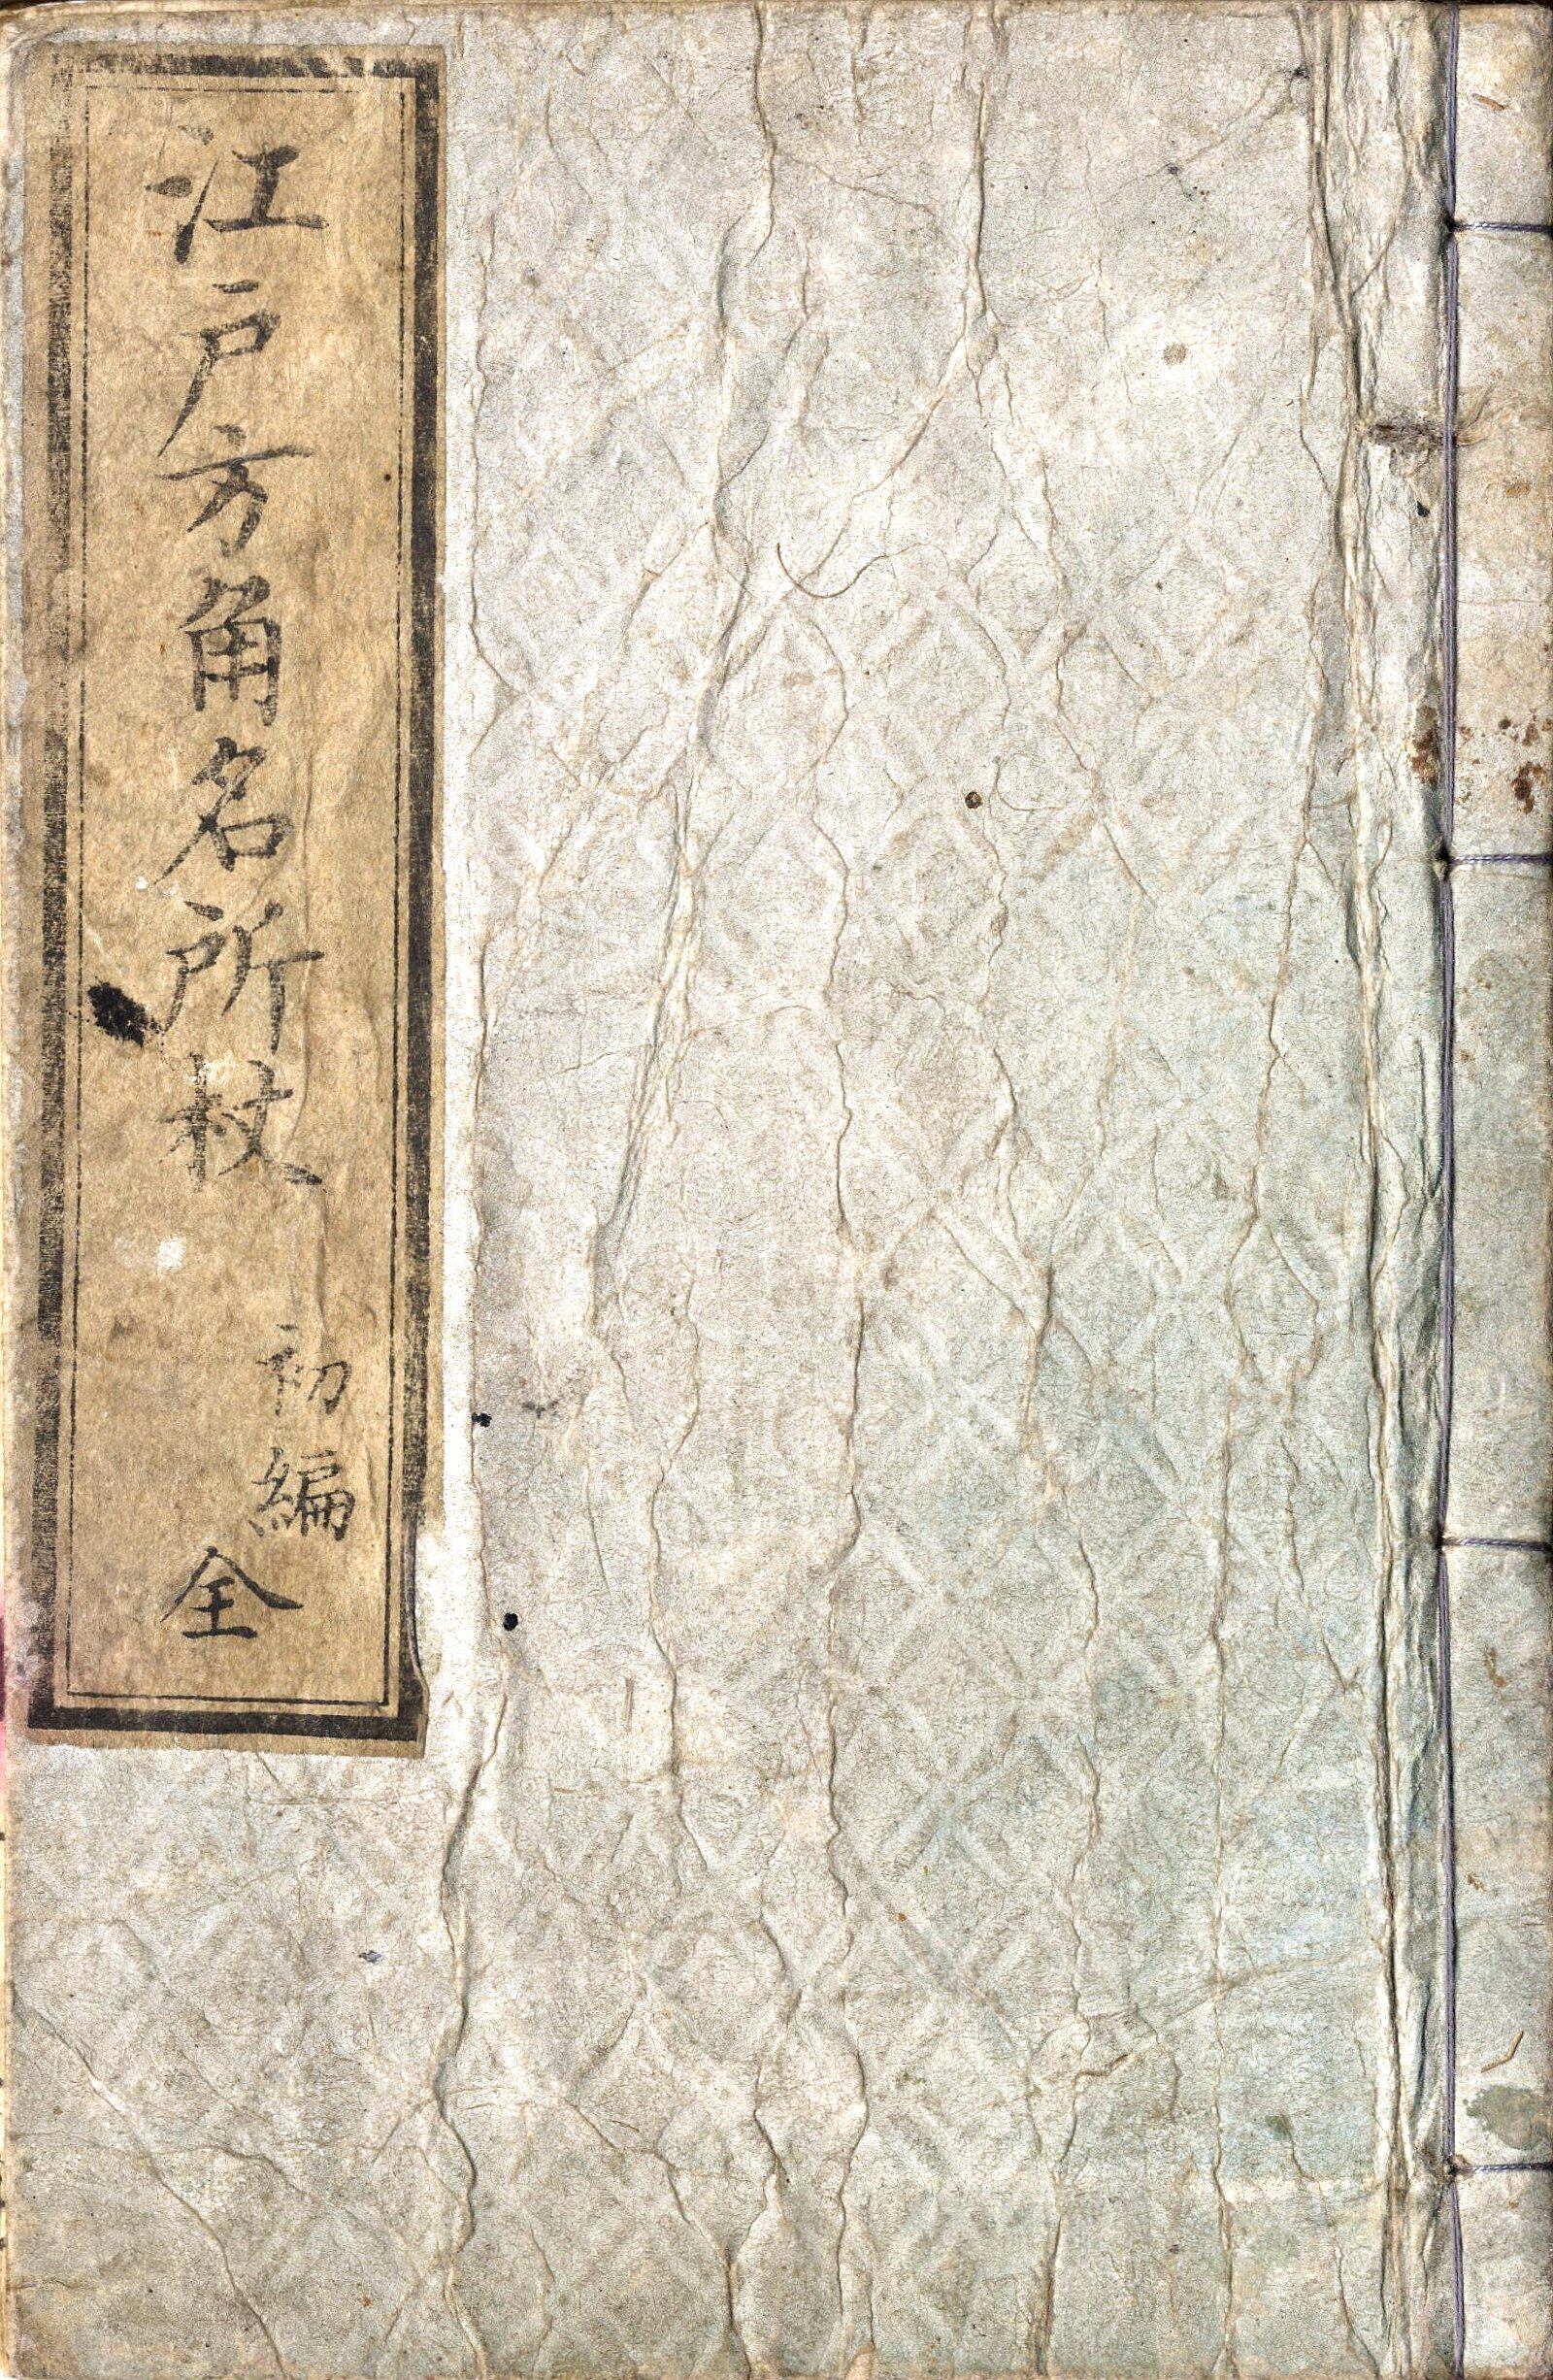 江戸方角名所杖
初編
全